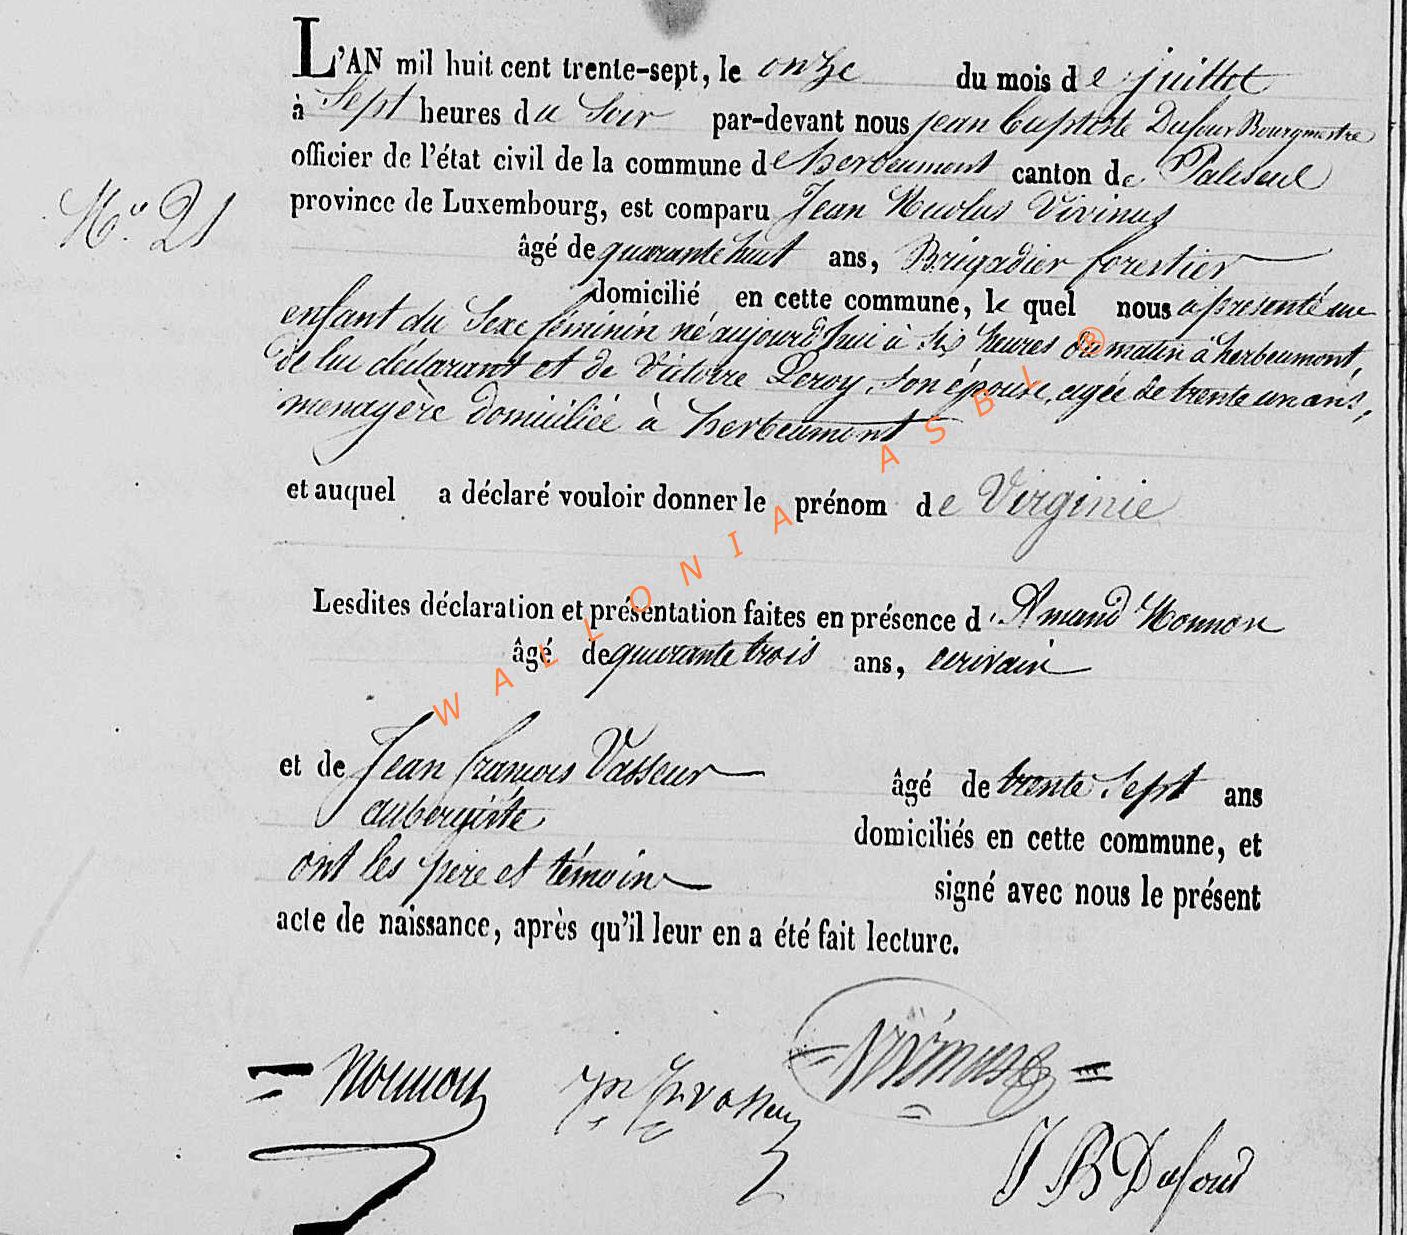 L'AN mil huit cent trente-sept, le onze du mois de juillet
à Sept heures du Soir par-devant nous jean baptiste Dufour Bourgmestre
officier de l'état civil de la commune de herbeumont canton de Paliseul
N° 21
province de Luxembourg, est comparu Jean Nicolas Vivinus
âgé de quarante huit ans, Brigadier forestier
domicilié en cette commune, le quel nous a présenté un
enfant du Sexe féminin né aujourd'hui à Six heures du matin à herbeumont,
de lui déclarant et de Victoire Leroy, Son épouse, agée de trente un ans,
menagère domiciliée à herbeumont
et auquel a déclaré vouloir donner le prénom de Virginie
Lesdites déclaration et présentation faites en présence d'Amand Nonnon
âgé de quarante trois ans, ecrivain
et de Jean françois Vasseur âgé de trente Sept ans
aubergiste domiciliés en cette commune, et
ont les père et témoins signé avec nous le présent
acte de naissance, après qu'il leur en a été fait lecture.
Nonnon Jn Fr Vasseur Vivinus
J B Dufour
WALLONIA ASBL ®